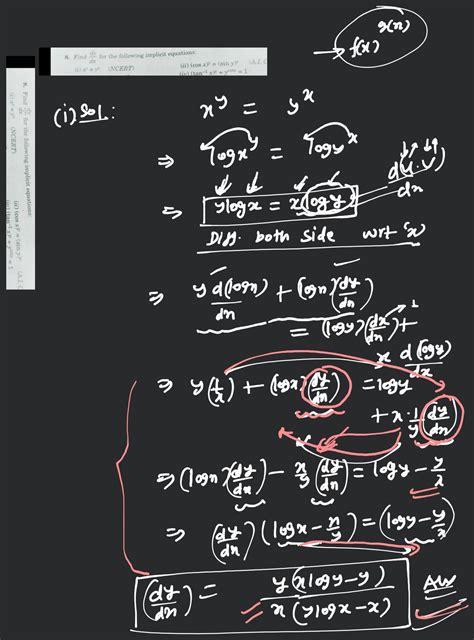 8. Find dy/dx for the following implicit equations:
(i) x^y = y^x (NCERT)
(ii) (cos x)^y = (sin y)^x
(iv) (tan⁻¹ x)^y + y^cot x = 1
8. Find dy/dx for the following implicit equations:
(i) x^y = y^x (NCERT)
(ii) (cos x)^y = (sin y)^x
(iv) (tan⁻¹ x)^y + y^cot x = 1
g(x)
→ f(x)
(i) Sol:
x^y = y^x
⇒ log x^y = log y^x
d(u·v)/dx
⇒ y log x = x (log y)
Diff. both side wrt 'x'
⇒ y d(log x)/dx + (log x)(dy/dx)
= (log y)(dx/dx) + x d(log y)/dx
⇒ y(1/x) + (log x)(dy/dx) = log y
+ x·1/y (dy/dx)
⇒ (log x)(dy/dx) - x/y (dy/dx) = log y - y/x
⇒ (dy/dx)(log x - x/y) = (log y - y/x)
(dy/dx) = y(x log y - y)/x(y log x - x) Ans